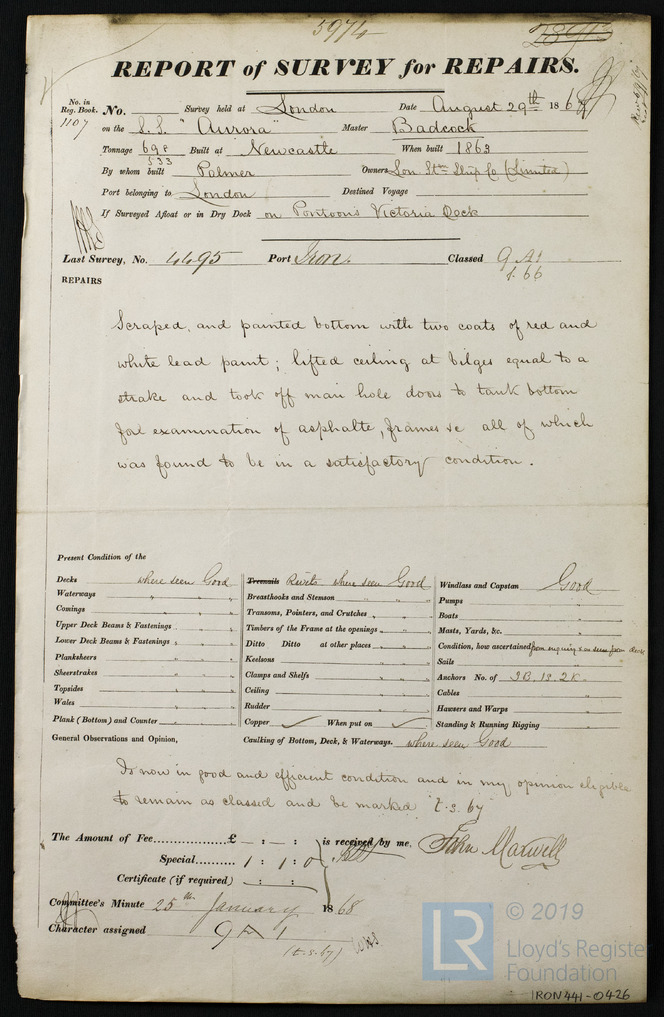 5974
REPORT of SURVEY for REPAIRS.
No. in Reg. Book. No. Survey held at London Date August 29th 186
1107 on the S.S. "Aurora" Master Badcock
Tonnage 698 Built at Newcastle When built 1863
533
By whom built Palmer Owners Lon. Stm Ship Co (Limited)
Port belonging to London Destined Voyage
If Surveyed Afloat or in Dry Dock on Pontoons Victoria Dock
Last Survey, No. 4495 Port Iron. Classed 9 A1
1.66
REPAIRS
Scraped, and painted bottom with two coats of red and
white lead paint; lifted ceiling at bilges equal to a
strake and took off man hole doors to tank bottom
for examination of asphalte, frames &c all of which
was found to be in a satisfactory condition.
Present Condition of the
Decks where seen Good
Waterways " " "
Comings " " "
Upper Deck Beams & Fastenings " " "
Lower Deck Beams & Fastenings " " "
Planksheers " " "
Sheerstrakes " " "
Topsides " " "
Wales " " "
Plank (Bottom) and Counter " " "
Treenails Rivets where seen Good
Breasthooks and Stemson " " "
Transoms, Pointers, and Crutches " " "
Timbers of the Frame at the openings " " "
Ditto Ditto at other places " " "
Keelsons " " "
Clamps and Shelfs " " "
Ceiling " " "
Rudder " " "
Copper ✓ When put on ✓
Caulking of Bottom, Deck, & Waterways. where seen Good
Windlass and Capstan Good
Pumps "
Boats "
Masts, Yards, &c. "
Condition, how ascertained from enquiry & as seen from deck
Sails "
Anchors No. of 3B. 1S. 2K. "
Cables "
Hawsers and Warps "
Standing & Running Rigging "
General Observations and Opinion,
Is now in good and efficient condition and in my opinion eligible
to remain as classed and be marked t.s. 67
The Amount of Fee................£ – : – : is received by me,
John Maxwell
Special.......... 1 : 1 : 0
Certificate (if required) – : – :
Committee's Minute 25th January 1868
Character assigned 9 A 1
(t.s. 67)
LR © 2019
Lloyd's Register
Foundation
IRON441-0426